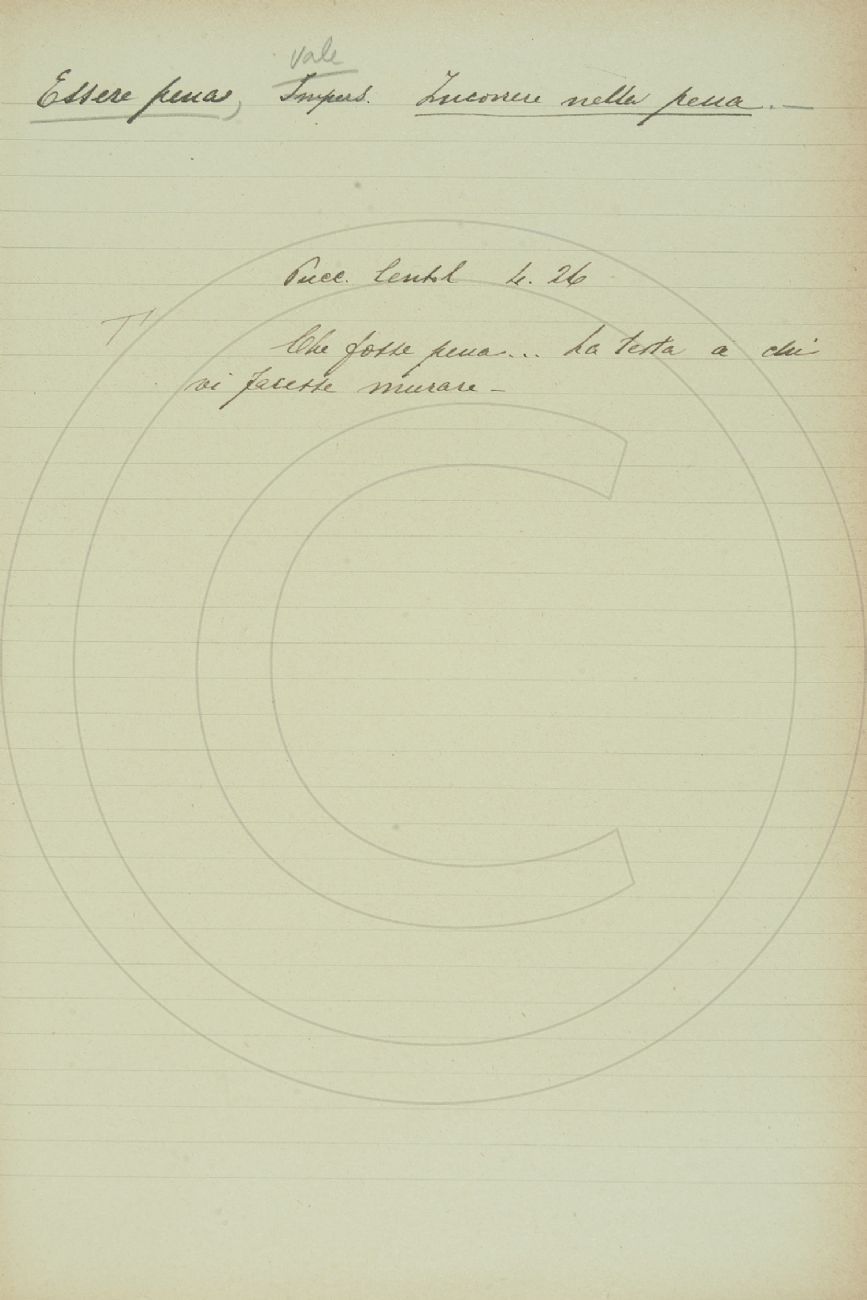 vale
Essere pena, Impers. Incorrere nella pena. —
Pucc. Centil 4. 26
T
Che fosse pena... La testa a chi
vi facesse murare —